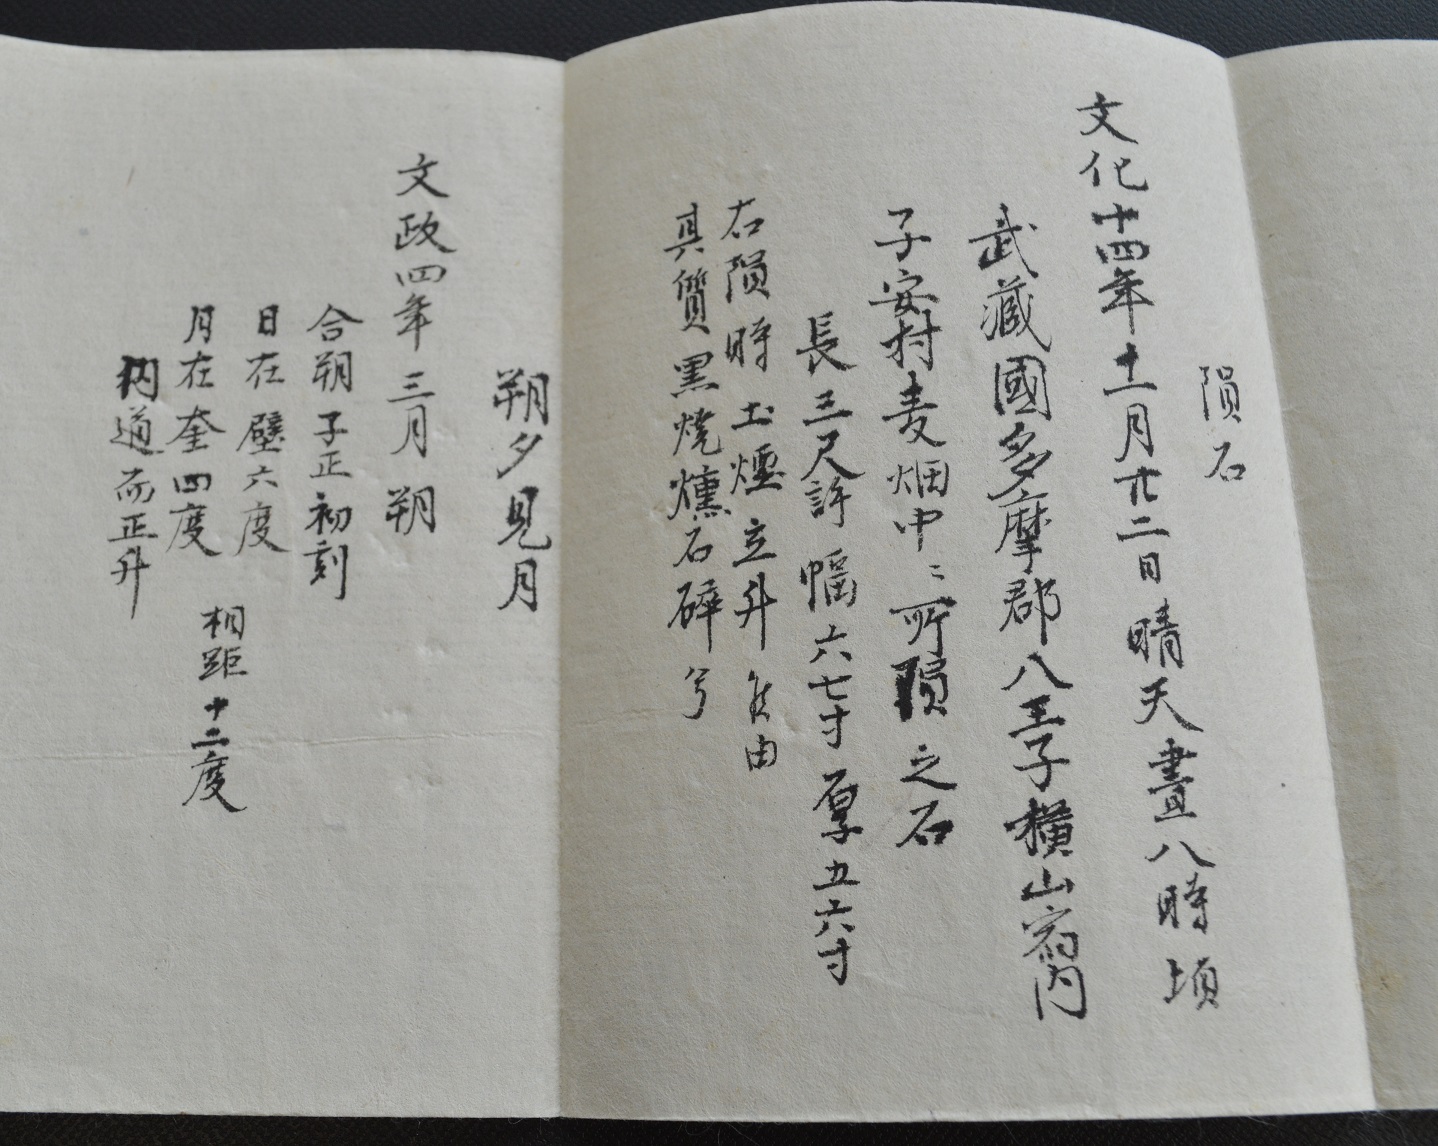 隕石
文化十四年十一月廿二日晴天晝八時頃
武藏國多摩郡八王子横山宿内
子安村麦畑中ニ所隕之石
長三尺許幅六七寸厚五六寸
右隕時土煙立升候由
其質黒焼燻石碎兮
朔夕見月
文政四年三月朔
合朔子正初刻
日在壁六度
月在奎四度
相距十二度
内道而正升